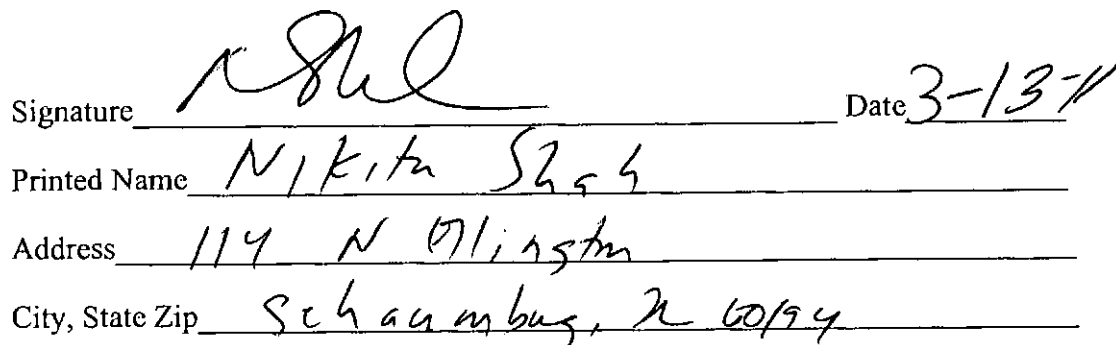 Signature Date 3-13-11
Printed Name Nikita Shah
Address 114 N
City, State Zip Schaumburg, IL 60194